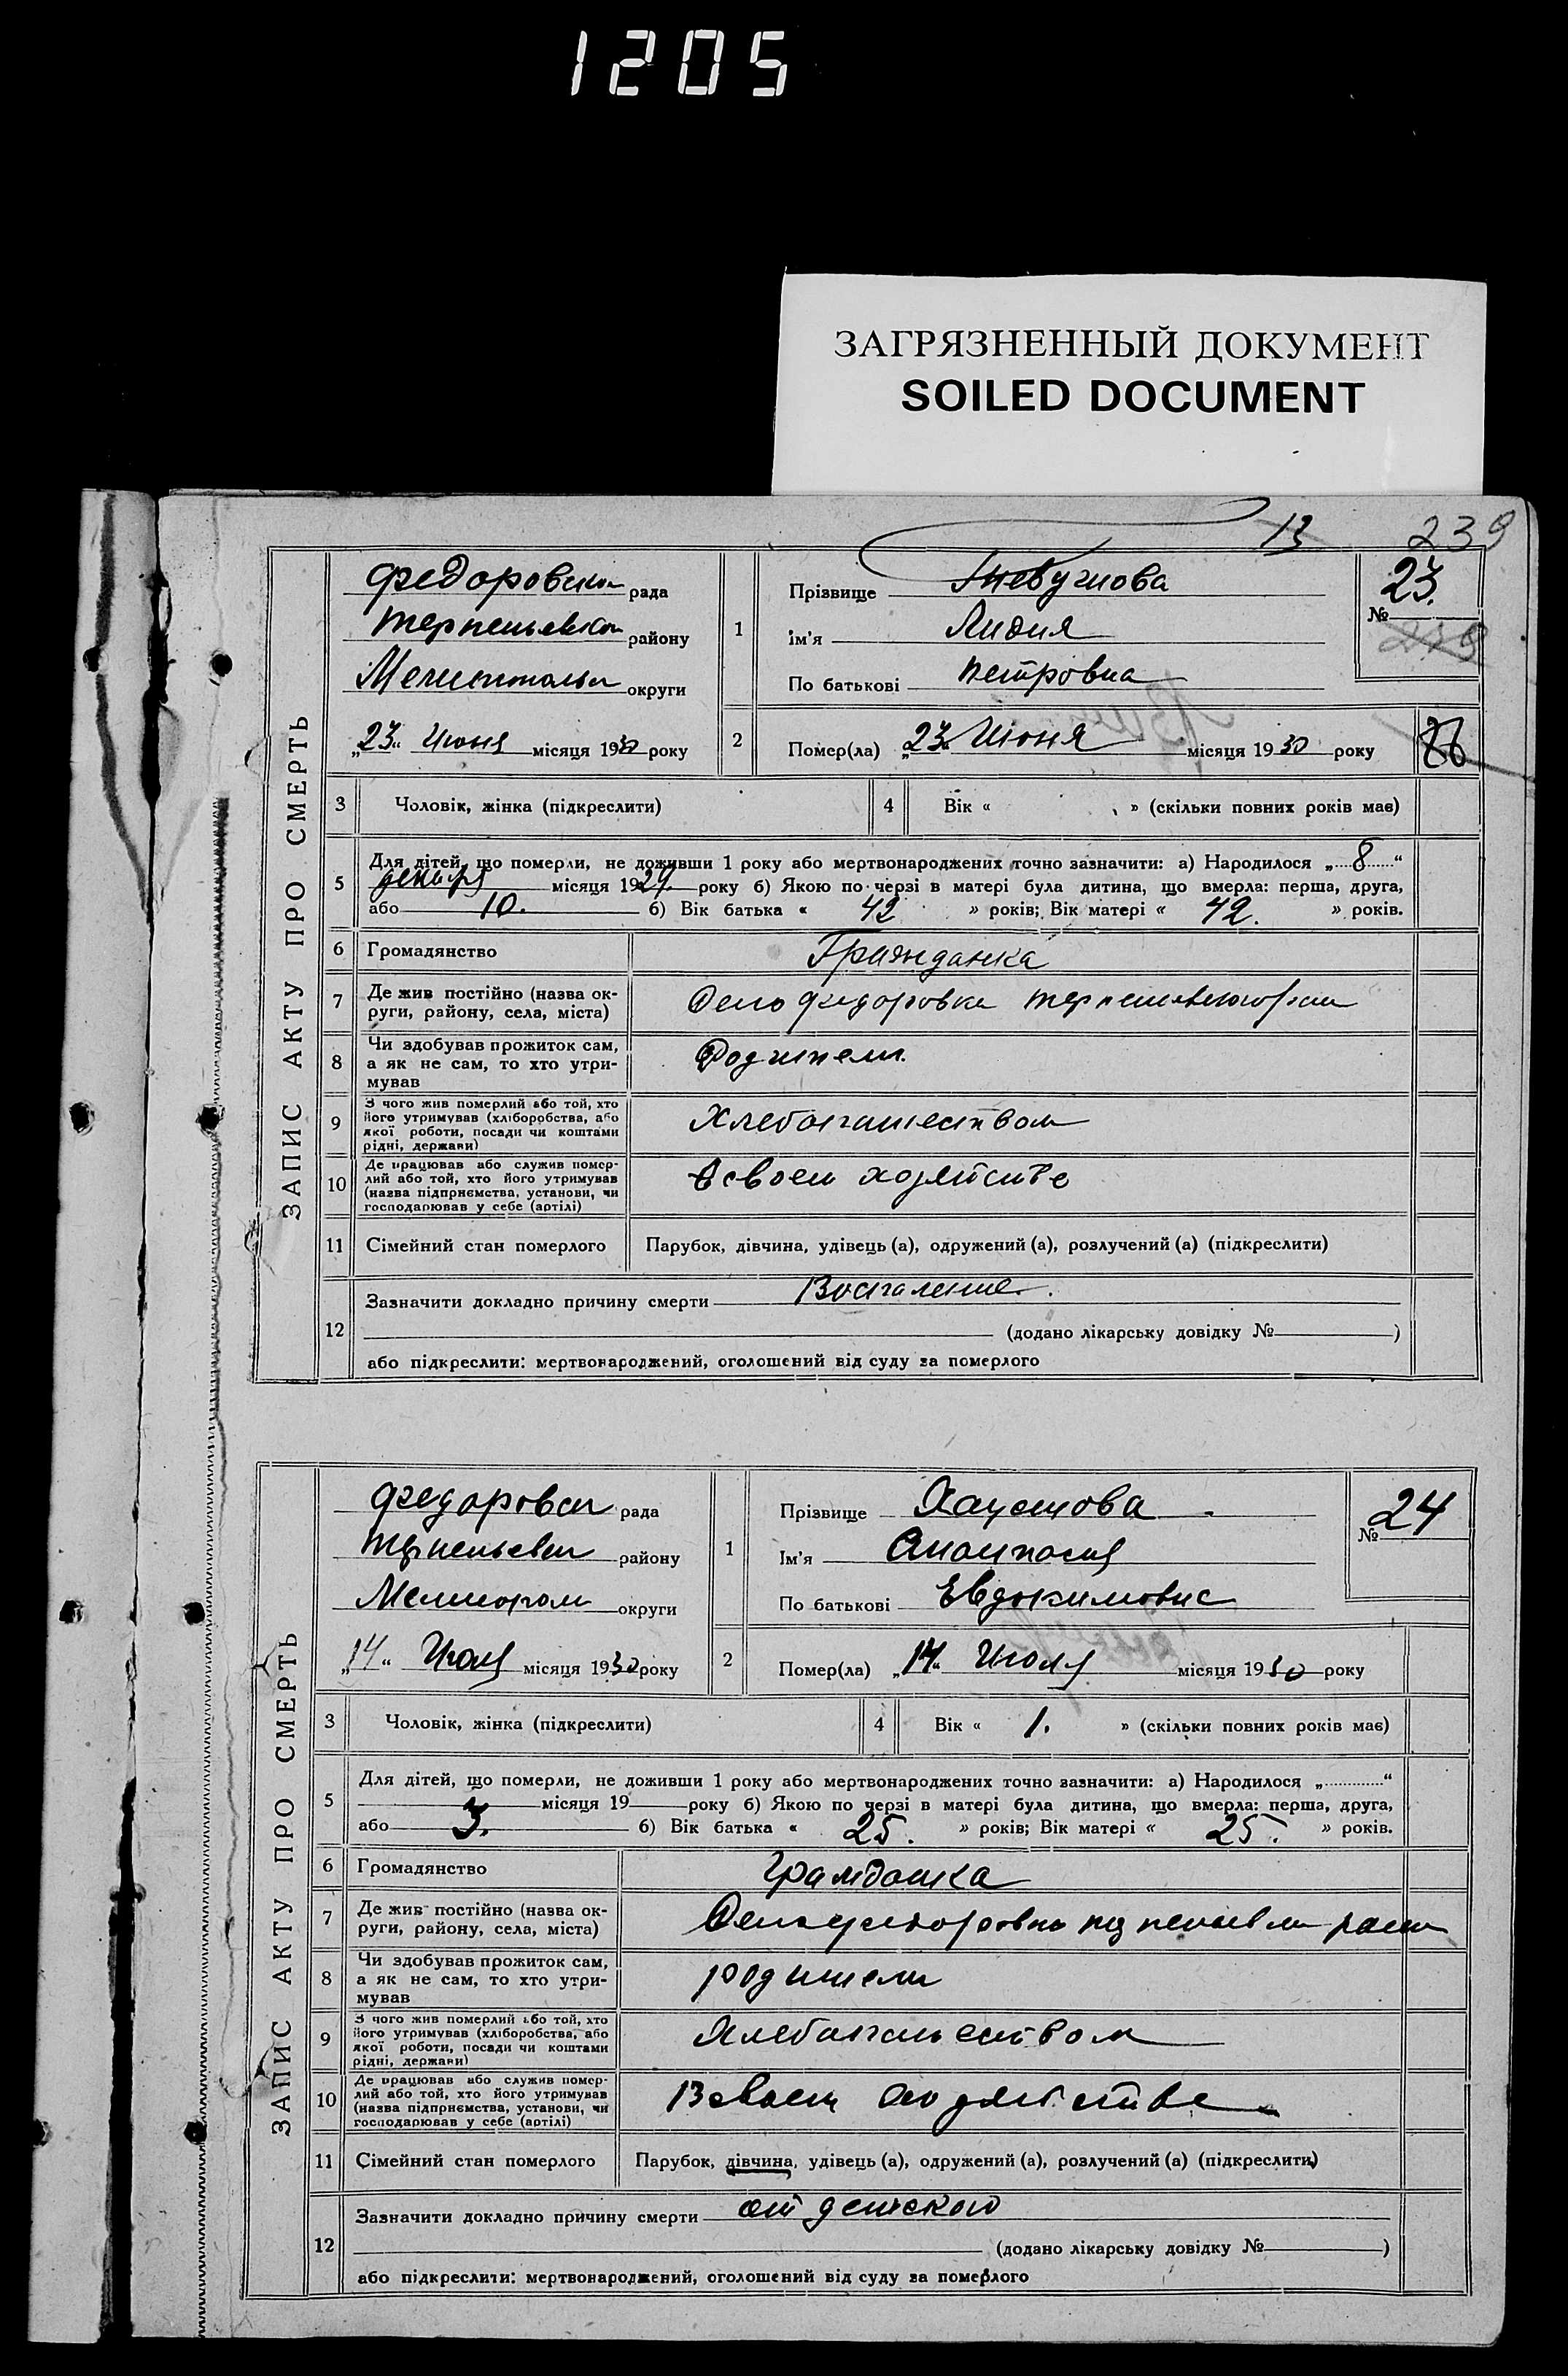 1205
ЗАГРЯЗНЕННЫЙ ДОКУМЕНТ
SOILED DOCUMENT
13 239
ЗАПИС АКТУ ПРО СМЕРТЬ
Федоровской рада
района
округи
„23“ Июня місяця 1930 року
1
Прізвище
Ім'я Лидия
По батькові Петровна
№ 23.
239
2
Помер(ла) „23“ Июня місяця 1930 року
3 Чоловік, жінка (підкреслити)
4 Вік « » (скільки повних років має)
5 Для дітей, що померли, не доживши 1 року або мертвонароджених точно зазначити: а) Народилося „8“
декабря місяця 1929 року б) Якою по черзі в матері була дитина, що вмерла: перша, друга,
або 10. б) Вік батька « 42 » років; Вік матері « 42. » років.
6 Громадянство Гражданка
7 Де жив постійно (назва ок-
руги, району, села, міста) Село Федоровка
8 Чи здобував прожиток сам,
а як не сам, то хто утри-
мував Родители
9 З чого жив померлий або той, хто
його утримував (хліборобства, або
якої роботи, посади чи коштами
рідні, держави) Хлебопашеством
10 Де працював або служив помер-
лий або той, хто його утримував
(назва підприємства, установи, чи
господарював у себе (артілі) В своем хозяйстве
11 Сімейний стан померлого Парубок, дівчина, удівець (а), одружений (а), розлучений (а) (підкреслити)
12 Зазначити докладно причину смерти Воспаление.
(додано лікарську довідку № )
або підкреслити: мертвонароджений, оголошений від суду за померлого
ЗАПИС АКТУ ПРО СМЕРТЬ
рада
району
округи
„14“ Июля місяця 1930 року
1
Прізвище Хаустова
Ім'я
По батькові
№ 24
2
Помер(ла) „14“ Июля місяця 1930 року
3 Чоловік, жінка (підкреслити)
4 Вік « 1. » (скільки повних років має)
5 Для дітей, що померли, не доживши 1 року або мертвонароджених точно зазначити: а) Народилося „ “
місяця 19 року б) Якою по черзі в матері була дитина, що вмерла: перша, друга,
або 3. б) Вік батька « 25. » років; Вік матері « 25. » років.
6 Громадянство Гражданка
7 Де жив постійно (назва ок-
руги, району, села, міста)
8 Чи здобував прожиток сам,
а як не сам, то хто утри-
мував родители
9 З чого жив померлий або той, хто
його утримував (хліборобства, або
якої роботи, посади чи коштами
рідні, держави) Хлебопашеством
10 Де працював або служив помер-
лий або той, хто його утримував
(назва підприємства, установи, чи
господарював у себе (артілі) В своем хозяйстве
11 Сімейний стан померлого Парубок, дівчина, удівець (а), одружений (а), розлучений (а) (підкреслити)
12 Зазначити докладно причину смерти от детского
(додано лікарську довідку № )
або підкреслити: мертвонароджений, оголошений від суду за померлого